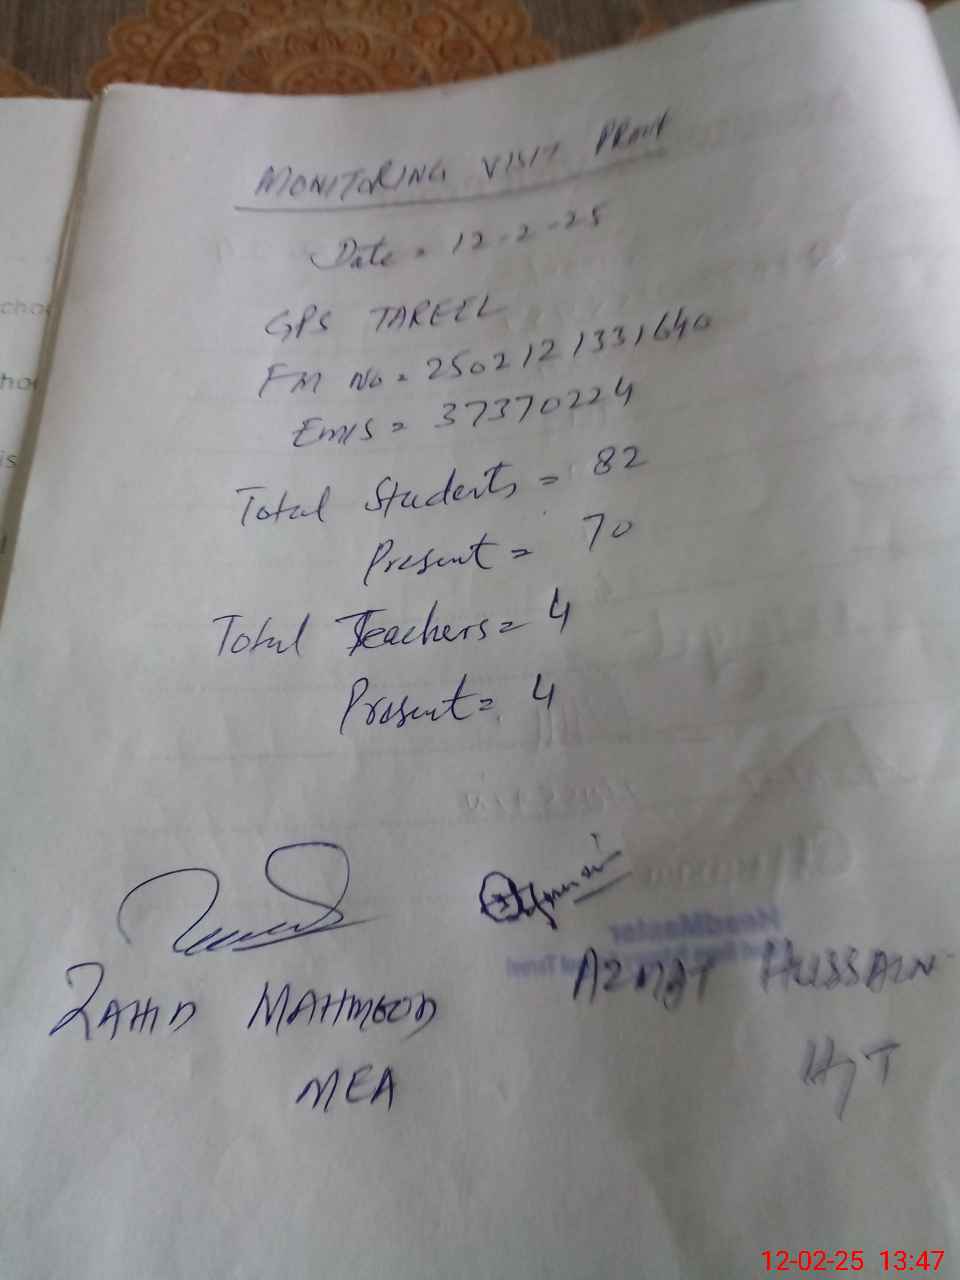 MONITORING VISIT PROOF
Date = 12-2-25
GPS TAREEL
FM No = 2502121331640
EMIS = 37370224
Total Students = 82
Present = 70
Total Teachers = 4
Present = 4
ZAHID MAHMOOD
MEA
AZMAT HUSSAIN
HeadMaster
12-02-25 13:47